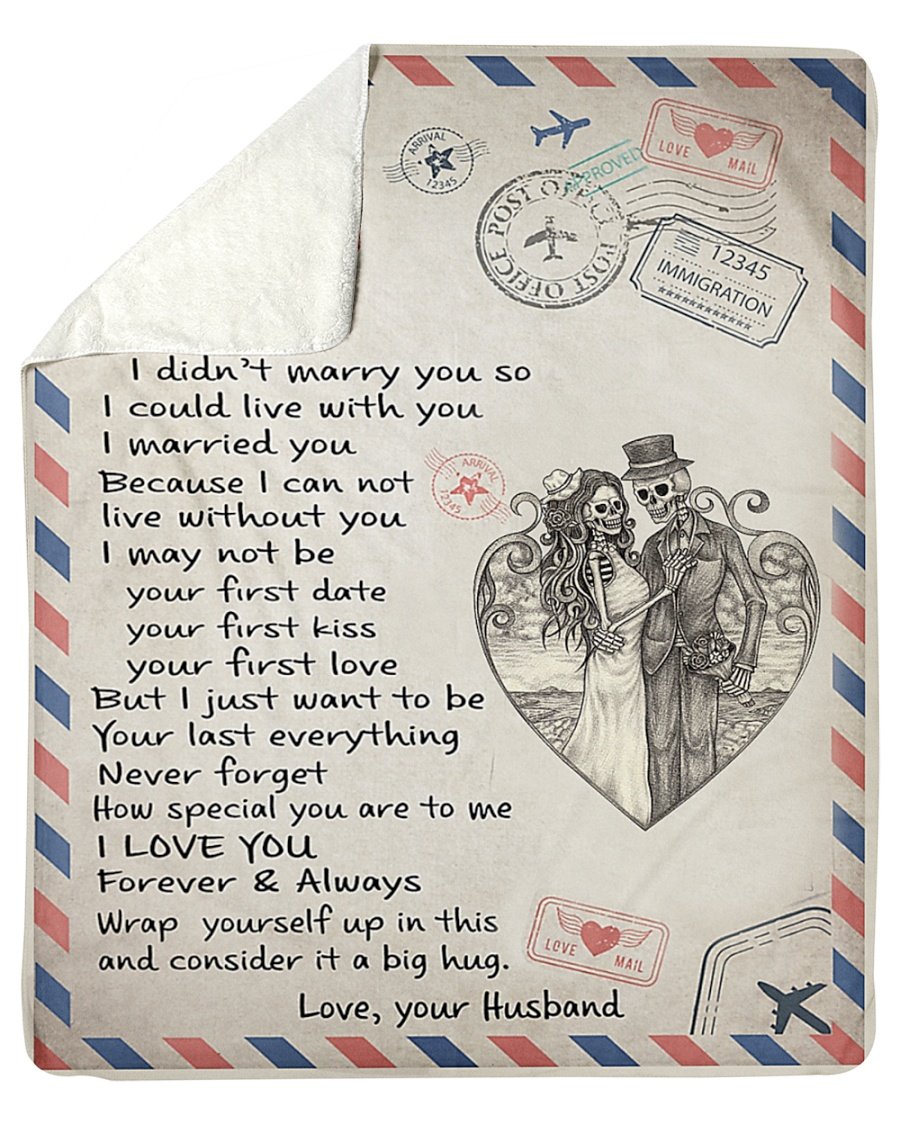 ARRIVAL
12345
LOVE MAIL
APPROVED
POST OFFICE
POST OFFICE
12345
IMMIGRATION
I didn't marry you so
I could live with you
I married you
Because I can not
live without you
ARRIVAL
12345
I may not be
your first date
your first kiss
your first love
But I just want to be
Your last everything
Never forget
How special you are to me
I LOVE YOU
Forever & Always
Wrap yourself up in this
and consider it a big hug.
LOVE MAIL
Love, your Husband